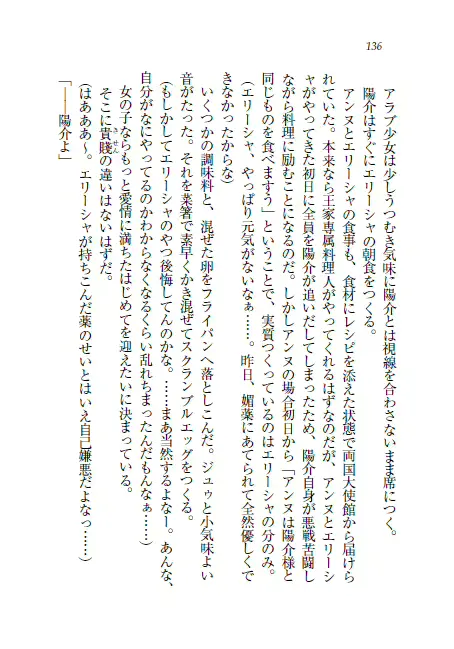 136
アラブ少女は少しうつむき気味に陽介とは視線を合わさないまま席につく。
陽介はすぐにエリーシャの朝食をつくる。
アンヌとエリーシャの食事も、食材にレシピを添えた状態で両国大使館から届けら
れていた。本来なら王家専属料理人がやってくれるはずなのだが、アンヌとエリーシ
ャがやってきた初日に全員を陽介が追いだしてしまったため、陽介自身が悪戦苦闘し
ながら料理に励むことになるのだ。しかしアンヌの場合初日から「アンヌは陽介様と
同じものを食べますう」ということで、実質つくっているのはエリーシャの分のみ。
（エリーシャ、やっぱり元気がないなぁ……。昨日、媚薬にあてられて全然優しくで
きなかったからな）
いくつかの調味料と、混ぜた卵をフライパンへ落としこんだ。ジュゥと小気味よい
音がたった。それを菜箸で素早くかき混ぜてスクランブルエッグをつくる。
（もしかしてエリーシャのやつ後悔してんのかな。……まあ当然するよなー。あんな、
自分がなにやってるのかわからなくなるくらい乱れちまったんだもんなぁ……）
女の子ならもっと愛情に満ちたはじめてを迎えたいに決まっている。
そこに貴賤の違いはないはずだ。
きせん
（はあああ〜。エリーシャが持ちこんだ薬のせいとはいえ自己嫌悪だよなっ……）
「――陽介よ」